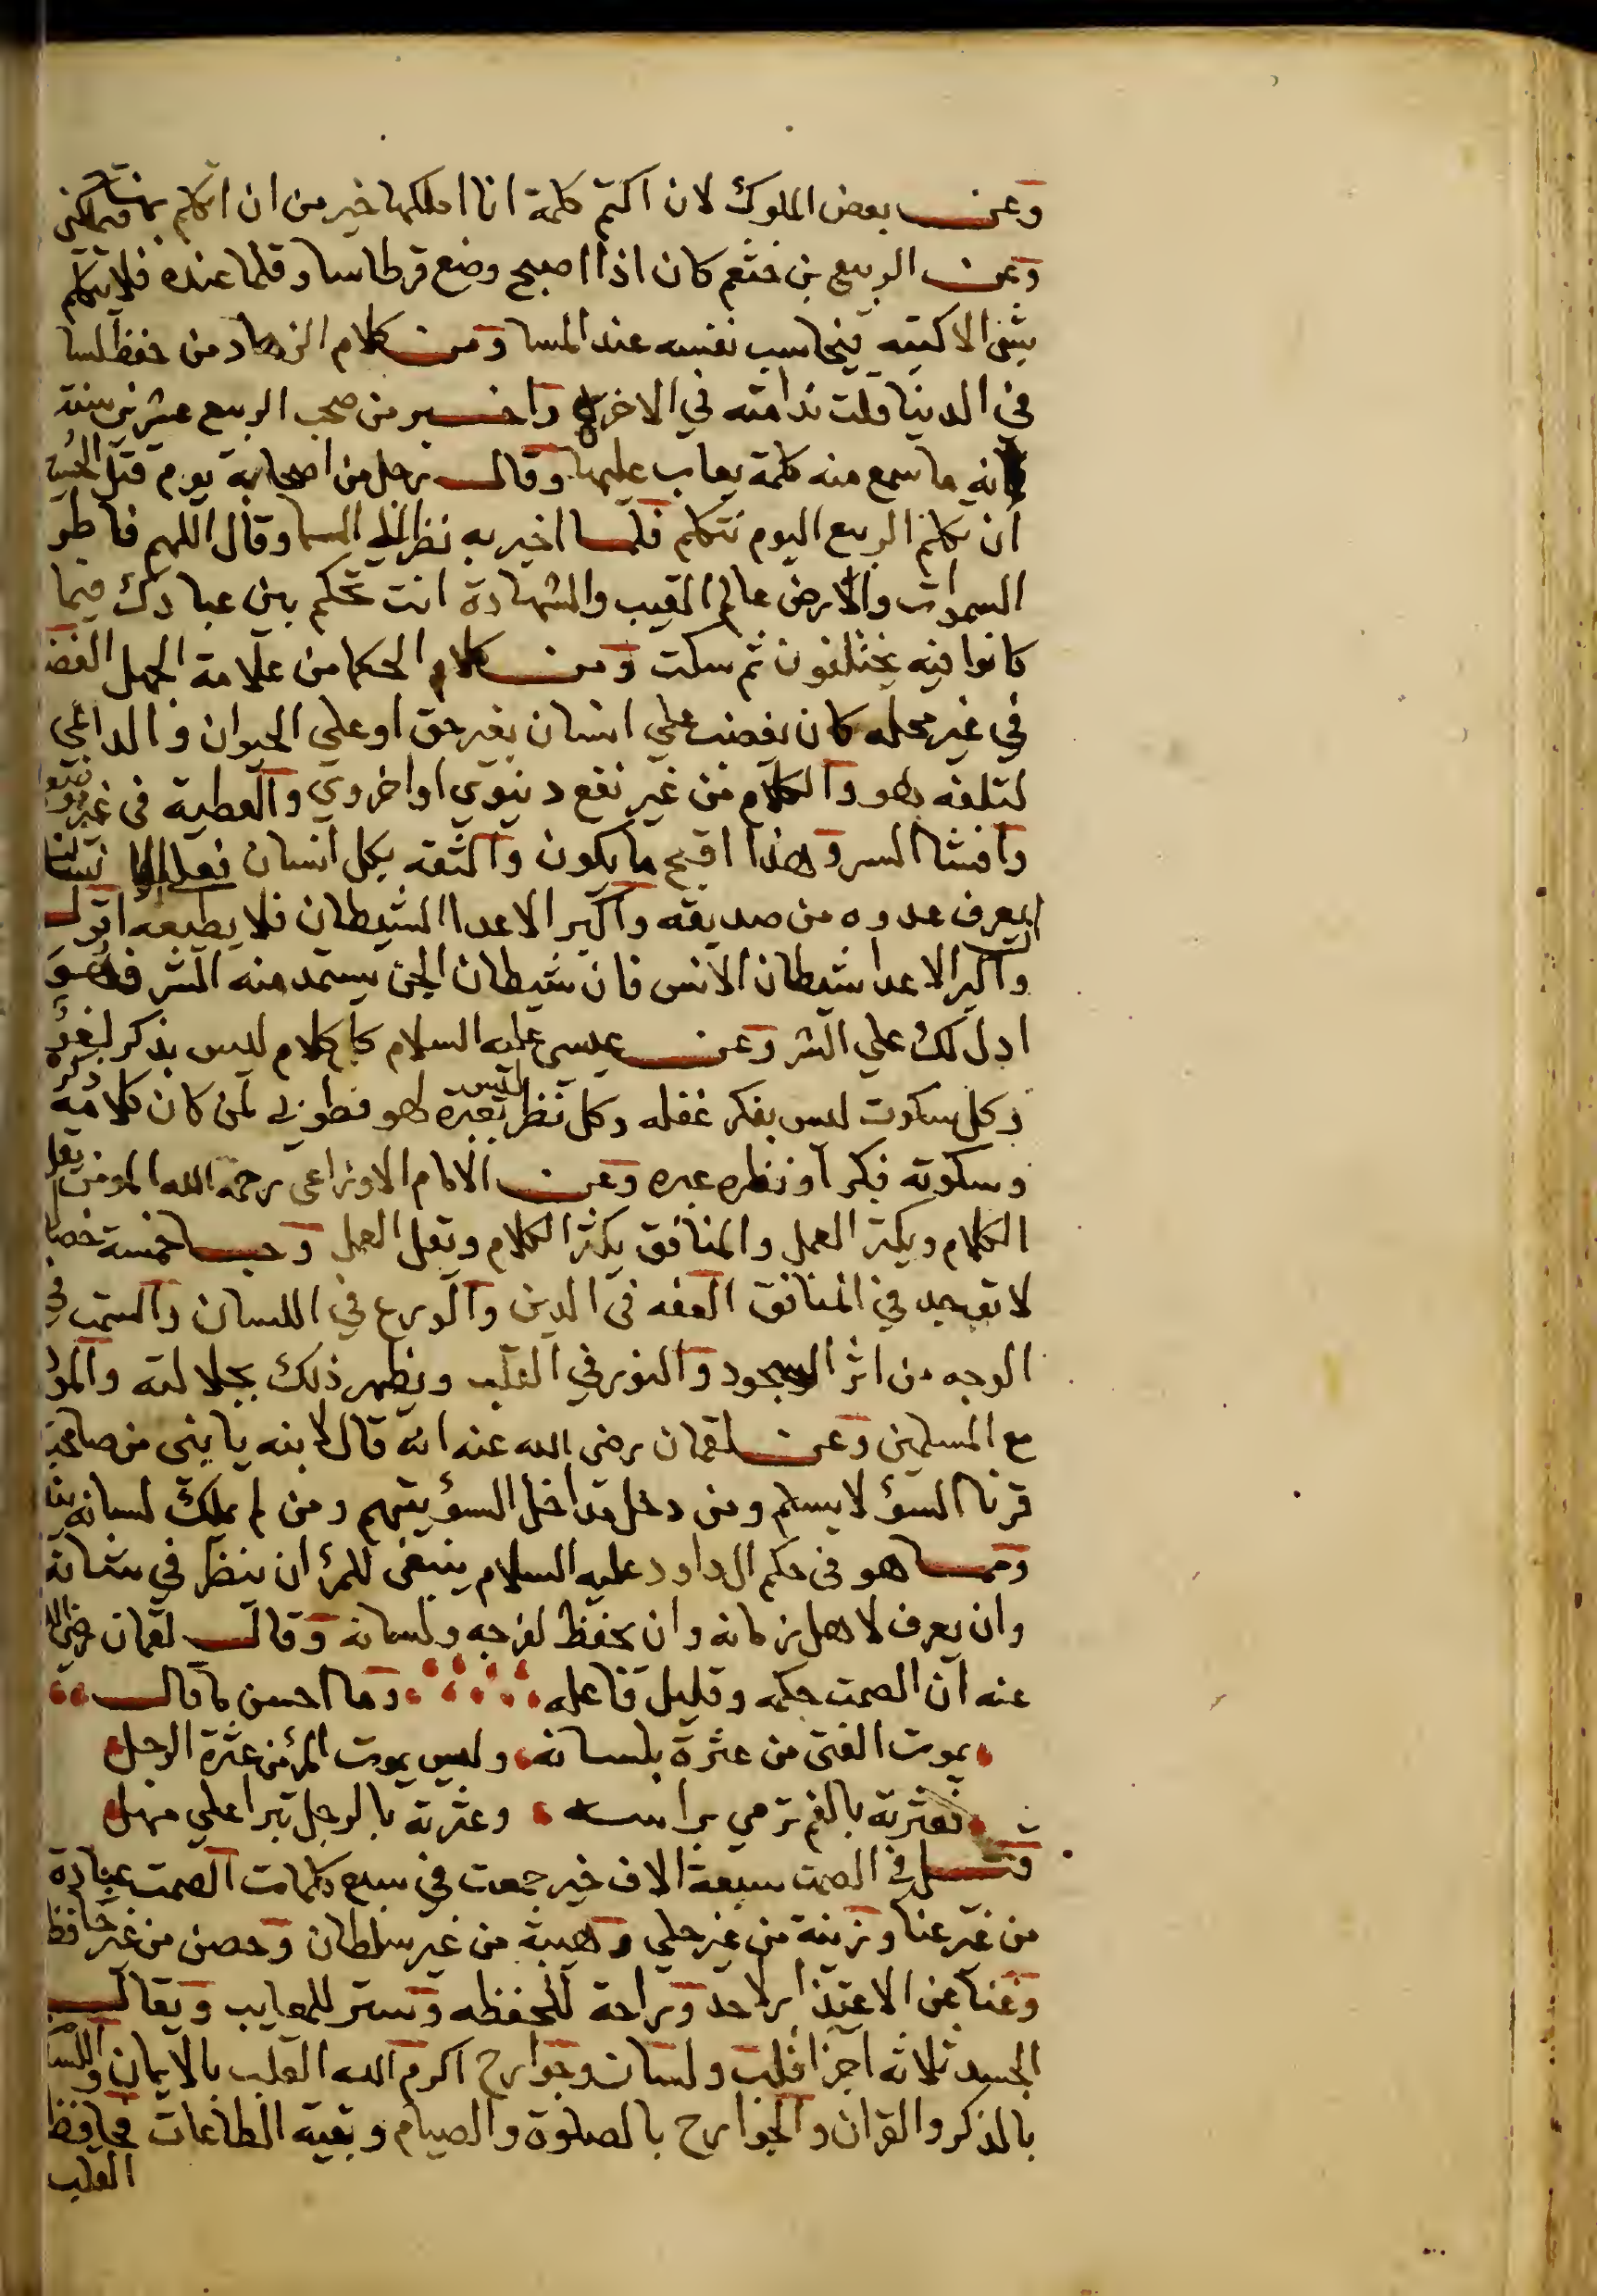 وعن بعض الملوك لان اكتم كلمة انا املكها خير من ان اتكلم بها فتملكني
وعن الربيع بن خثعم كان اذا اصبح وضع قرطاسا وقلما عنده فلا يتكلم
بشي الا كتبه فيحاسب نفسه عند المسا ومن كلام الزهاد من حفظ لسا
في الدنيا قلت ندامته في الاخرة واخبر من صحب الربيع عشرين سنة
انه ما سمع منه كلمة يعاب عليها وقال رجل من اصحابه يوم قتل الحسين
ان تكلم الربيع اليوم تتكلم فلما اخبر به نظر الى السما وقال اللهم فاطر
السموات والارض عالم الغيب والشهادة انت تحكم بين عبادك فيما
كانوا فيه يختلفون ثم سكت ومن كلام الحكما من علامة الجهل الغضب
في غير محله كان يغضب علي انسان بغير حق او علي الحيوان والداعي
لتلفه بهو والكلام من غير نفع دنيوي او اخروي والعطية في غير موضع
وافشا السر وهذا اقبح ما يكون والثقه بكل انسان فعلى الانسان
ليعرف عدوه من صديقه واكبر الاعدا الشيطان فلا يطيعه اقول
واكبر الاعدا شيطان الانس فان شيطان الجن يستمد منه الشر فهو
ادل لك علي الشر وعن عيسى عليه السلام كل كلام ليس بذكر لغو
وكل سكوت ليس بفكر غفله وكل نظر ليس بعبرة لهو فطوبي لمن كان كلامه ذكره
وسكوته فكر او نظره عبره وعن الامام الاوزاعي رحمه الله المومن يقل
الكلام ويكثر العمل والمنافق يكثر الكلام ويقل العمل وحسا خمسة خصا
لا توجد في المنافق الفقه في الدين والورع في اللسان والسمت في
الوجه من اثر السجود والنور في القلب ويظهر ذلك بجلالته والمو
مع المسلمين وعن لقمان رضي الله عنه انه قال لابنه يا بني من صاحب
قرنا السؤ لا يسلم ومن دخل مداخل السؤ يتهم ومن لم يملك لسانه يندم
ومما هو في حكم ال داود عليه السلام ينبغي للمرؤ ان ينظر في شانه
وان يعرف لاهل زمانه وان يحفظ لفرجه ولسانه وقال لقمان رضي الله
عنه ان الصمت حكمه وقليل فاعله وما احسن ما قال
يموت الفتى من عثرة بلسانه وليس يموت المرؤ من عثرة الرجل
فعثرته بالفم ترمي براسه وعثرته بالرجل تبرا علي مهل
قيل في الصمت سبعة الاف خير جمعت في سبع كلمات الصمت عبادة
من غير عنا وزينة من غير حلي وهيبة من غير سلطان وحصن من غير حافظ
وغنا عن الاعتذار لاحد وراحة للحفظه وستر للمعايب ويقال
الجسد ثلاثه اجزا قلب ولسان وجوارح اكرم الله القلب بالايمان واللسا
بالذكر والقران والجوارح بالصلوة والصيام وبقية الطاعات فحافظ
القلب